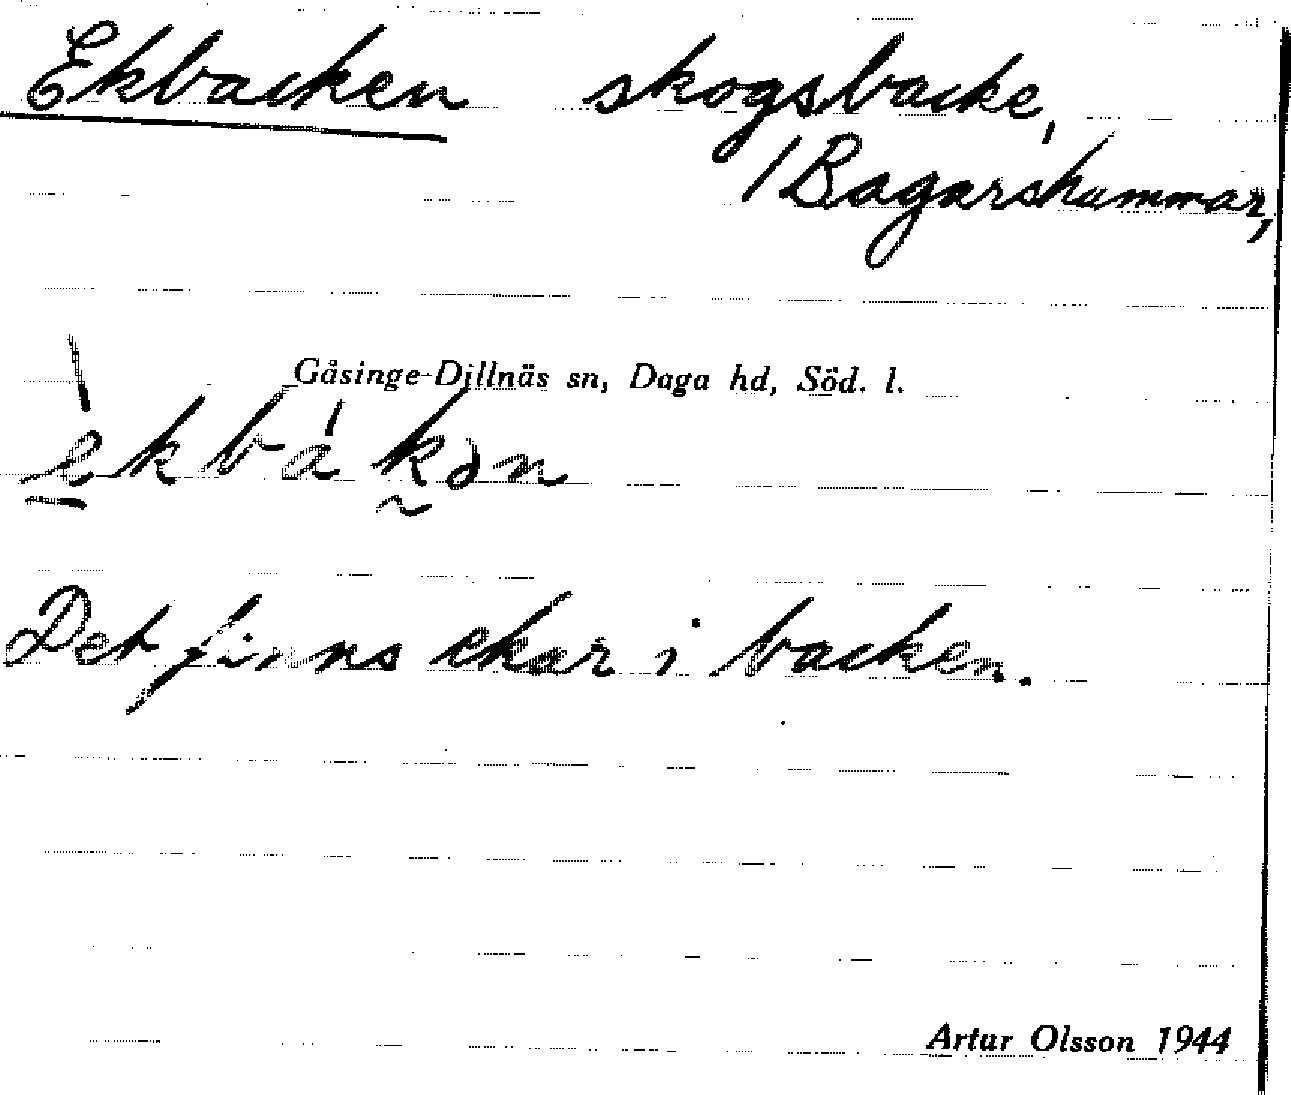 Ekbacken skogsbacke,
/Bagarshammar,
Gåsinge-Dillnäs sn, Daga hd, Söd. l.
è̱kbákən
Det finns ekar i backen.
Artur Olsson 1944